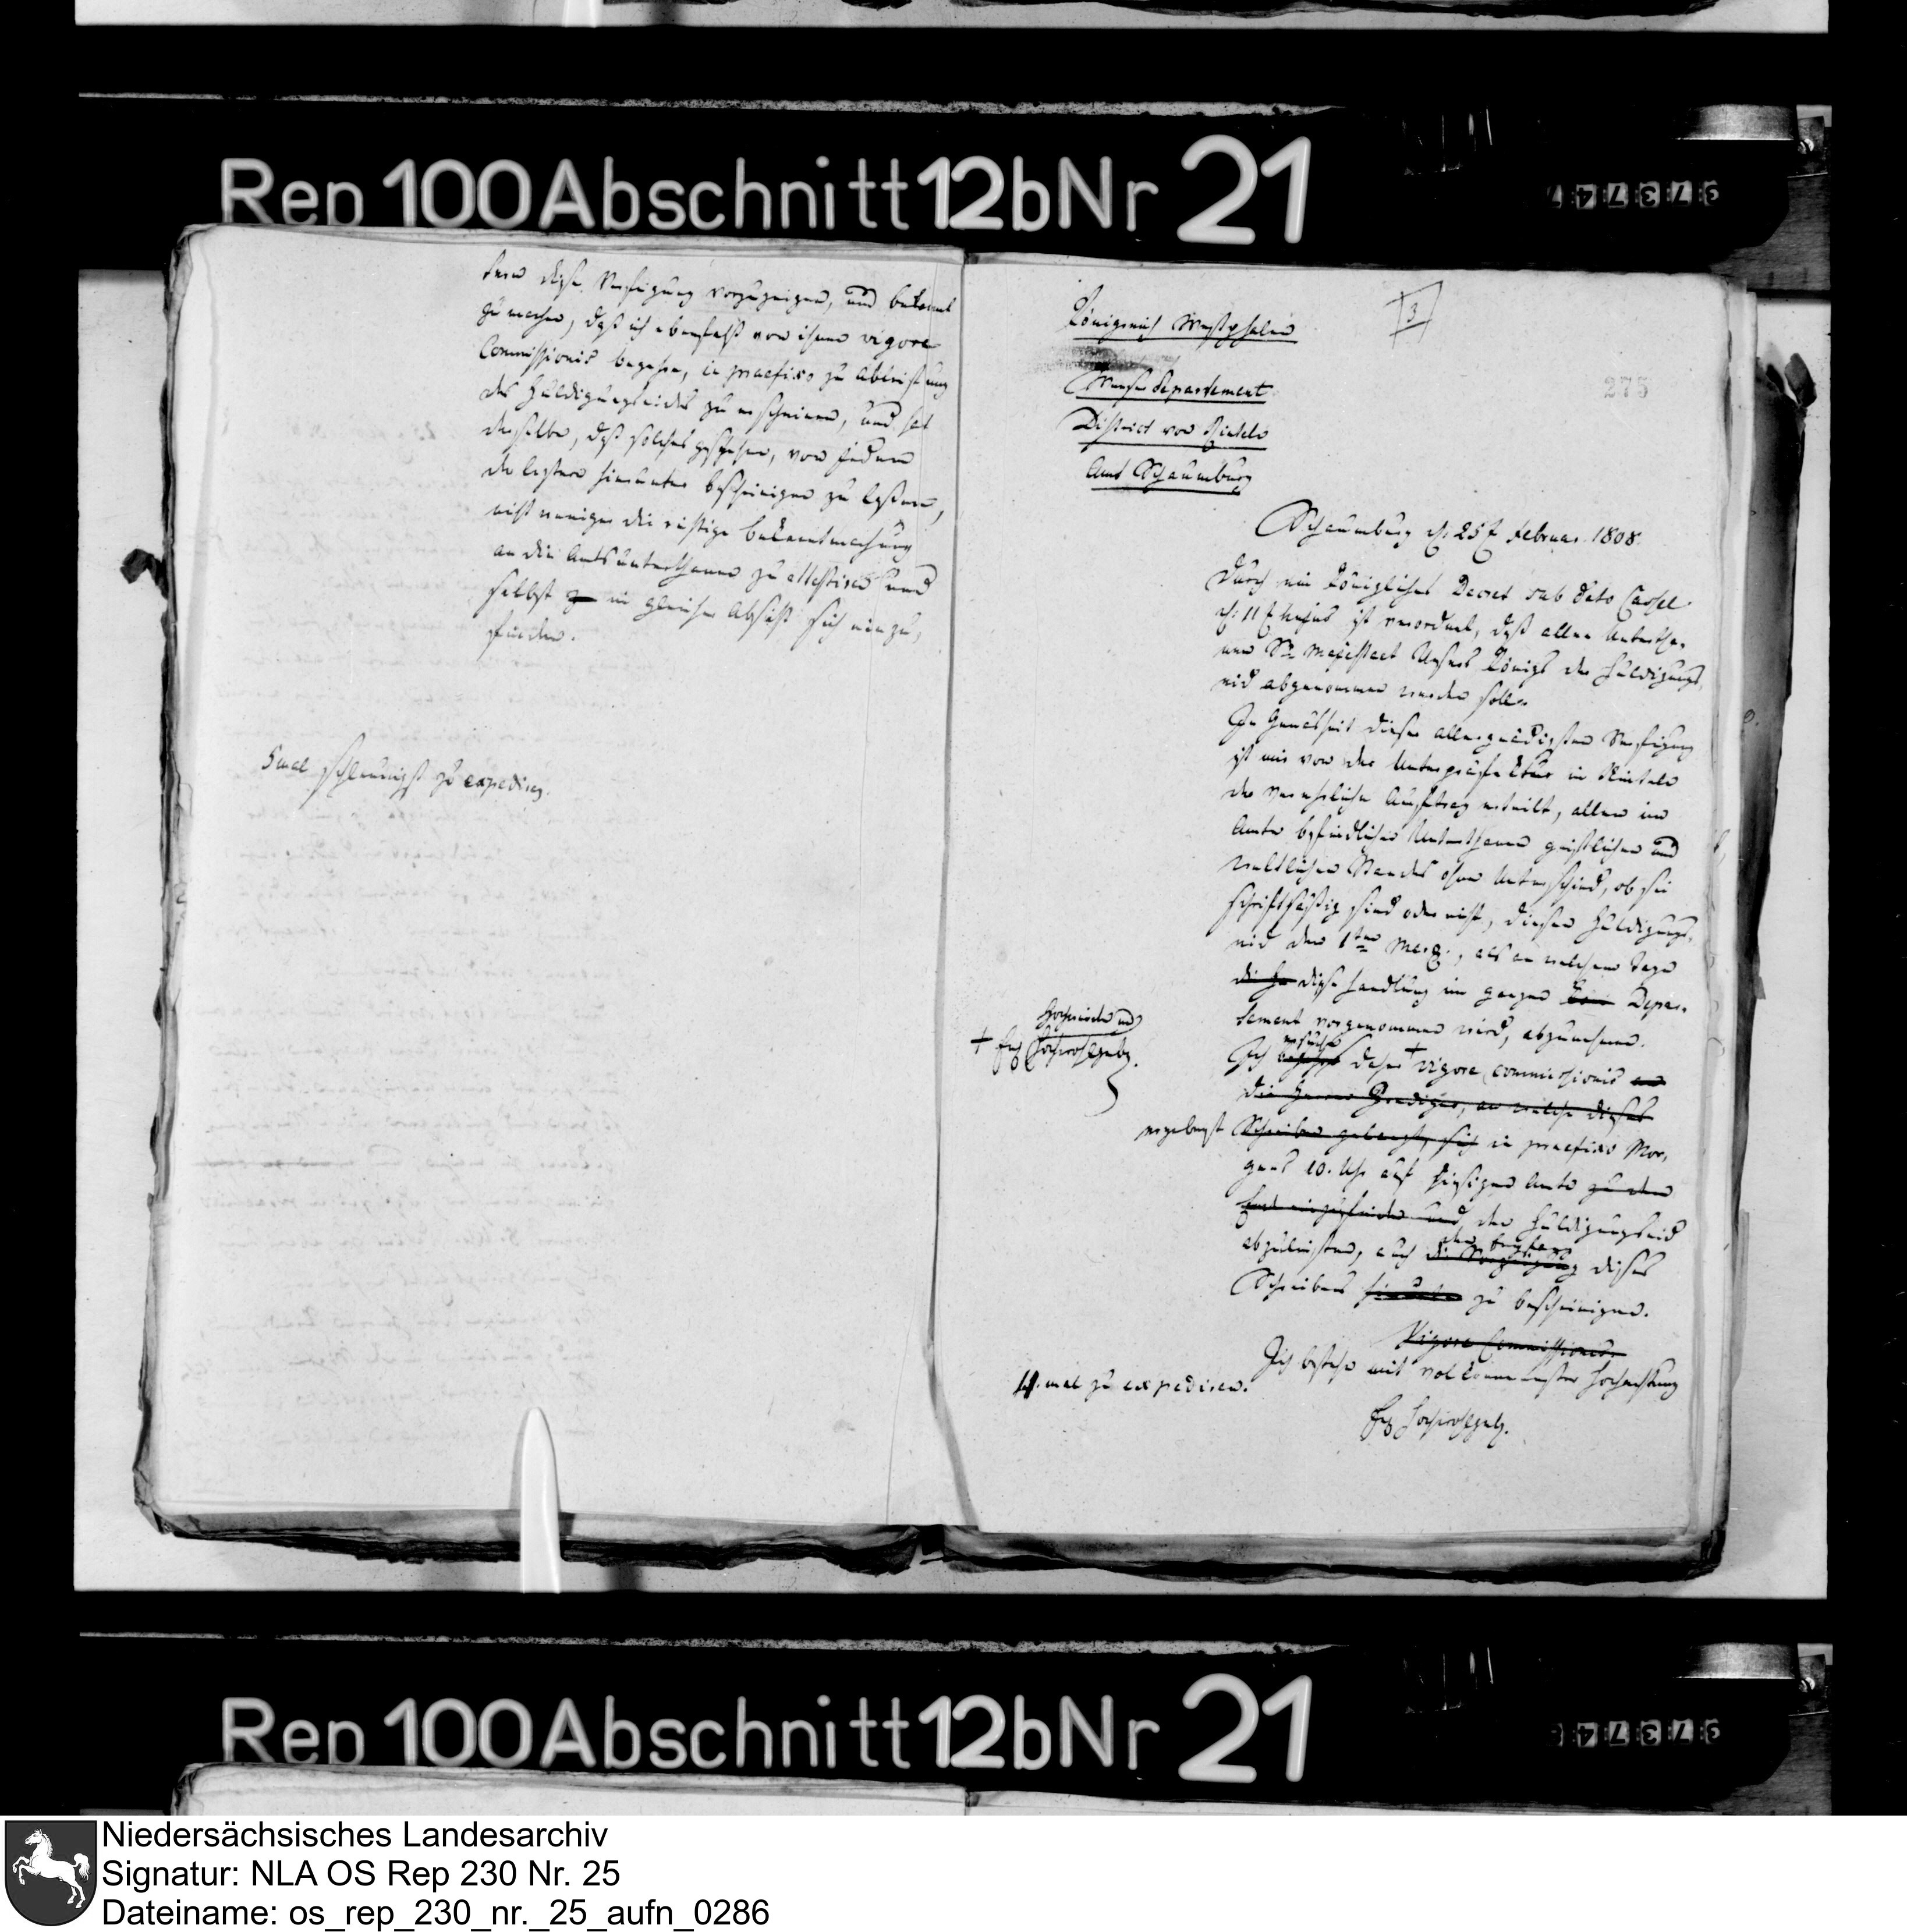 Rep 100 Abschnitt 12b Nr 21
tern diese Verfügung vorzuzeigen, und bekannt
zu machen, daß ich ebenfalß von ihnen vigore
Commissionis begehre, in praefixo zu Ableistung
des Huldigungseides zu erscheinen, und hat
derselbe, daß solches geschehen, von jedem
der leztern hierunter bescheinigen zu laßen,
nicht weniger die richtige Bekanntmachung
an die Amtsunterthanen zu attestiren und
selbst zu in gleicher Absicht sich einzu,
finden.
5 mal schleunigst zu expediren.
3
275
Königreich Westphalen
Weserdepartement
District von Rinteln
Amt Schaumburg
Schaumburg d. 25t Februar 1808.
Durch ein Königliches Decret sub dato Cassel
d. 11t hujus ist verordnet, daß allen Untertha,
nen Sr. Majestaet Unsers Königs der Huldigungs,
eid abgenommen werden solle.
In Gemäsheit dieser allergnädigsten Verfügung
ist mir von der Unterpräfektur in Rinteln
der verehrliche Auftrag erteilt, allen im
Amte befindlichen Unterthanen geistlichen und
weltlichen Standes ohne Unterschied, ob sie
schriftsäßig sind oder nicht, diesen Huldigungs,
eid den 1ten Merz, als an welchem Tage
diese Handlung im ganzen Depar,
tement vorgenommen wird, abzunehmen.
ersuche
Ich daher + vigore commissionis an
+ Ew Hochwohlgeb.
die Herren Prediger, an welche dieses
ergebenst Schreiben gelangt, sich in praefixo Mor,
gens 10. Uhr auf hiesigem Amte zu dem
Ende einzufinden und den Huldigungseid
abzuleisten, auch die Vorzeigung dieses
den Empfang
Schreibens hierunter zu bescheinigen.
Vigore Commissionis.
Ich bestehe mit vollkommenster Hochachtung
mal zu expediren.
Ew Hochwohlgeb.
Rep 100 Abschnitt 12b Nr 21
Niedersächsisches Landesarchiv
Signatur: NLA OS Rep 230 Nr. 25
Dateiname: os_rep_230_nr._25_aufn_0286